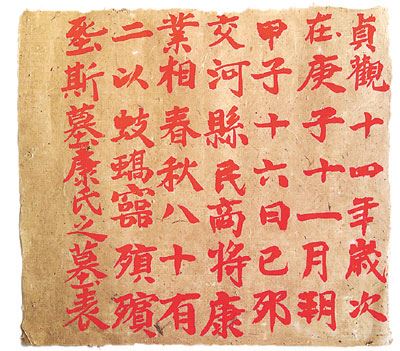 貞觀十四年歲次
在庚子十一月朝
甲子十六日己卯
交河縣民商將康
業相春秋八十有
二以蚑殞殯
斯墓康氏之墓表